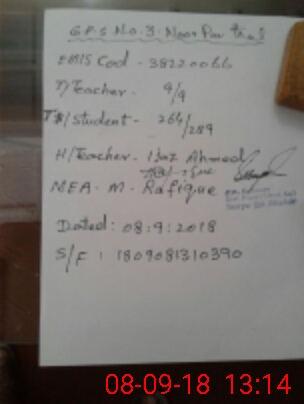 G.P.S No. 3. Noor Pur
EMIS Cod - 38220066
T/Teacher - 9/9
T/Student - 264/289
H/Teacher - Ijaz Ahmed
MEA. M. Rafique
Dated: 08:9:2018
S/F: 1809081310390
08-09-18 13:14